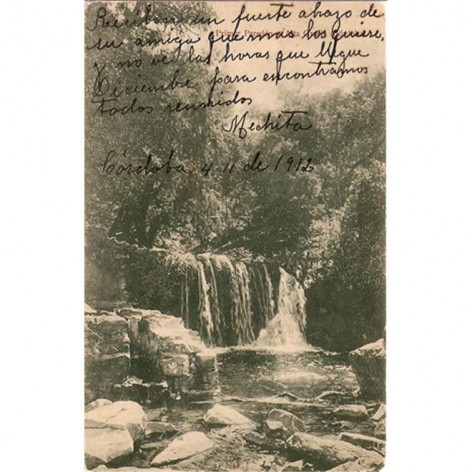 Reciban un fuerte abazo de
su amiga que mas los quiere,
y no ve las horas que llegue
Diciembre para encontrarnos
todos reunidos
Mechita
Córdoba 4 11 de 1912